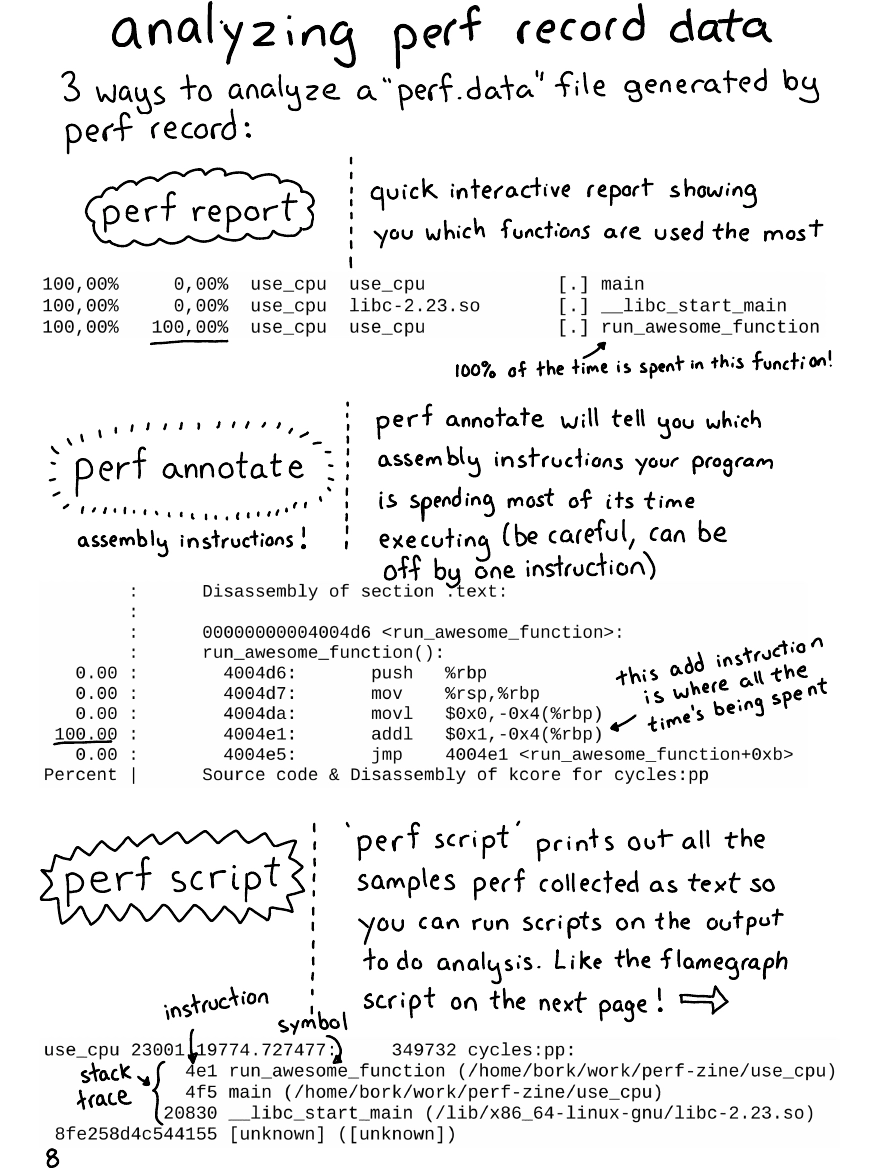 analyzing perf record data
3 ways to analyze a "perf.data" file generated by
perf record:
perf report
quick interactive report showing
you which functions are used the most
100,00% 0,00% use_cpu use_cpu [.] main
100,00% 0,00% use_cpu libc-2.23.so [.] __libc_start_main
100,00% 100,00% use_cpu use_cpu [.] run_awesome_function
100% of the time is spent in this function!
perf annotate
assembly instructions!
perf annotate will tell you which
assembly instructions your program
is spending most of its time
executing (be careful, can be
off by one instruction)
: Disassembly of section .text:
:
: 00000000004004d6 <run_awesome_function>:
: run_awesome_function():
0.00 : 4004d6: push %rbp
0.00 : 4004d7: mov %rsp,%rbp
0.00 : 4004da: movl $0x0,-0x4(%rbp)
100.00 : 4004e1: addl $0x1,-0x4(%rbp)
0.00 : 4004e5: jmp 4004e1 <run_awesome_function+0xb>
Percent | Source code & Disassembly of kcore for cycles:pp
this add instruction
is where all the
time's being spent
perf script
'perf script' prints out all the
samples perf collected as text so
you can run scripts on the output
to do analysis. Like the flamegraph
script on the next page!
instruction
symbol
use_cpu 23001 19774.727477: 349732 cycles:pp:
stack
trace
4e1 run_awesome_function (/home/bork/work/perf-zine/use_cpu)
4f5 main (/home/bork/work/perf-zine/use_cpu)
20830 __libc_start_main (/lib/x86_64-linux-gnu/libc-2.23.so)
8fe258d4c544155 [unknown] ([unknown])
8